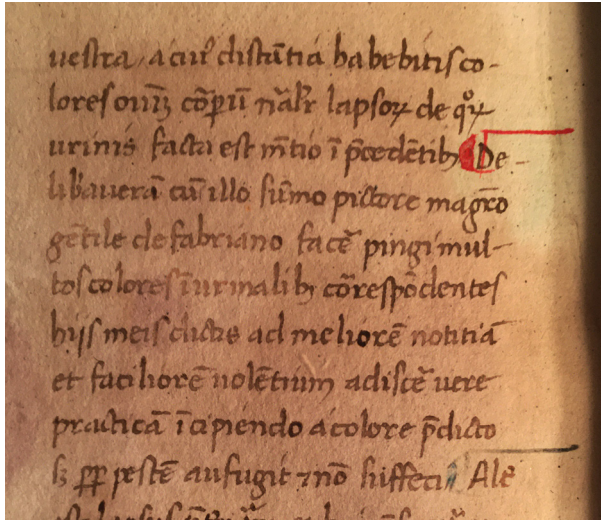 uestra, a cui⁹ distãtia habebitis co-
lores oniũ cõpũ nãlr̃ lapsoꝝ de qͦꝝ
urinis facta est mẽtio ĩ p̃cedẽtibꝫ De-
libauerã cũ illo sũmo pictore mag̃ro
gẽtile de fabriano facẽ pingi mul-
tos colores ĩ urinalibꝫ cõrespõdentes
hijs meis dictis ad meliorẽ notitiã
et faciliorẽ uolẽtium adiscẽ uere
practicã ĩcipiendo a colore p̃dicto
sꝫ ꝓꝑ pestẽ aufugit ⁊ nõ suffeci Ale